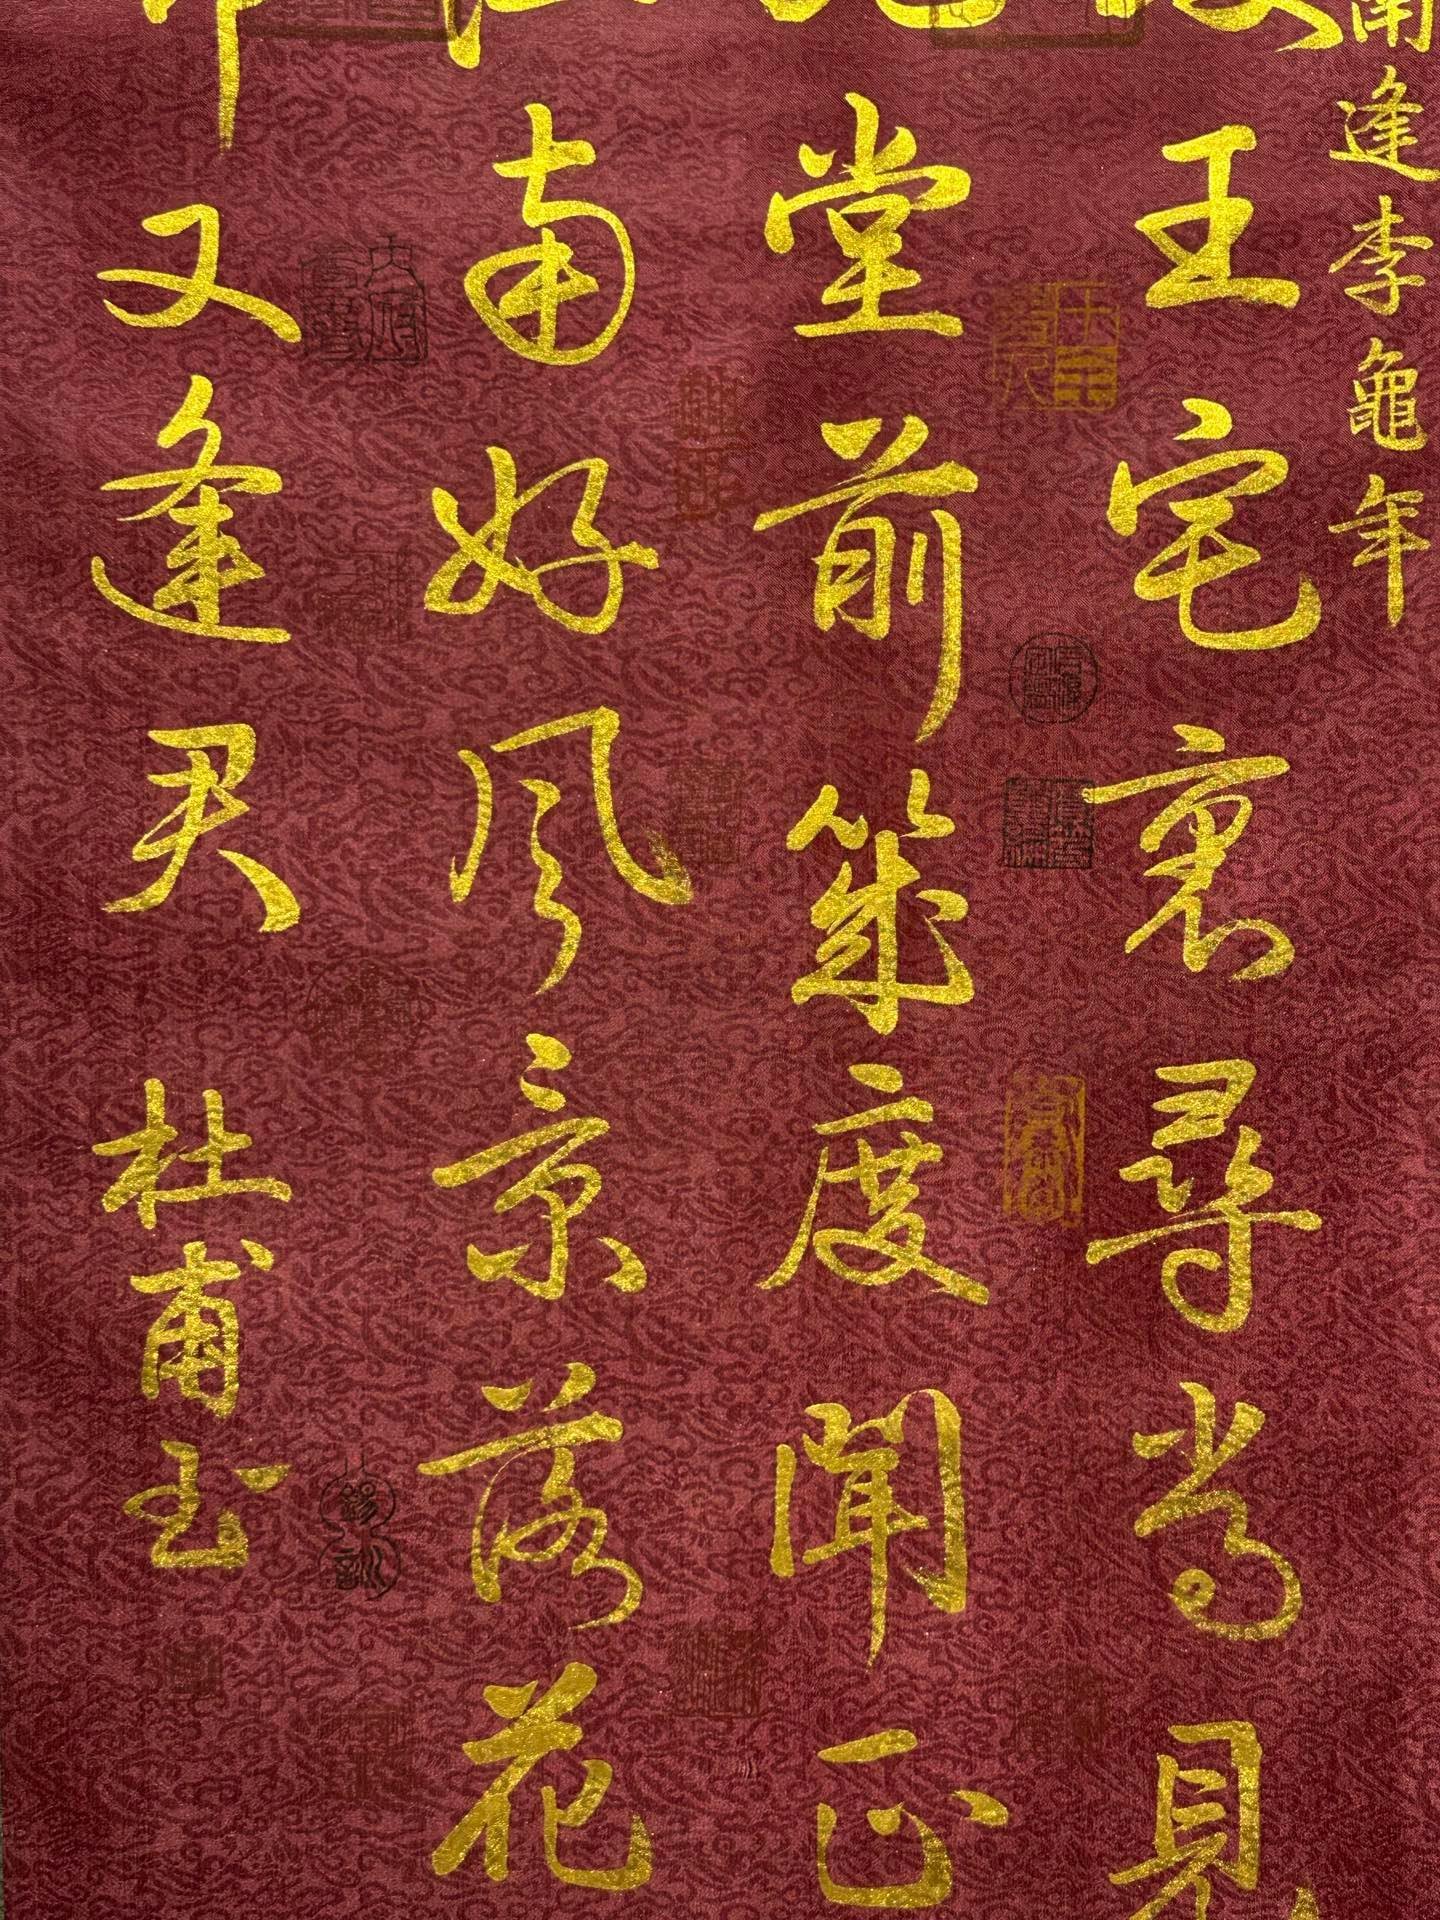 南逢李龜年
王宅裏尋常見
堂前幾度聞正
南好风景落花
又逢君 杜甫